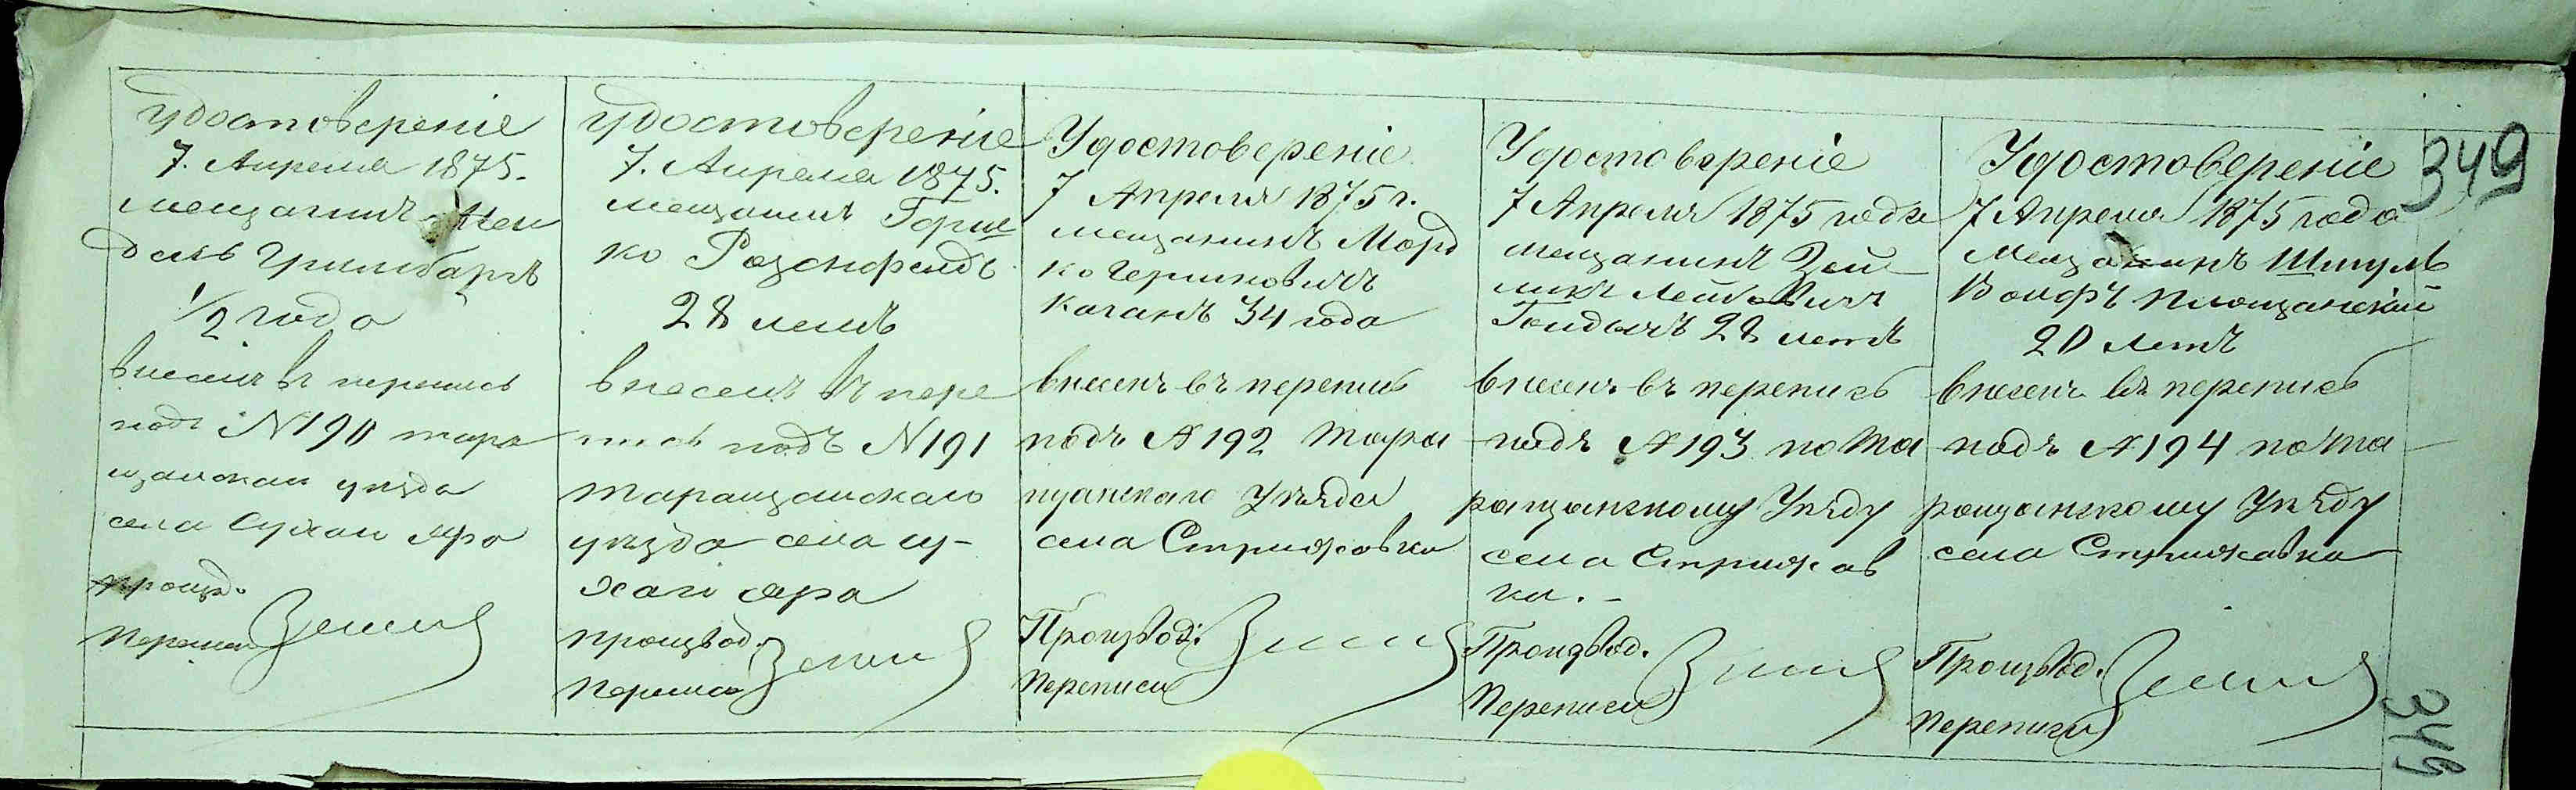 Удостоверение
7. Апреля 1875.
мещанинъ Мен
дель Гринбаргъ
1/2 года
внесенъ въ перепись
подъ N 190 тара
щанскаго уезда
села Сухаго Яра
произв.
Переписи
Удостоверенiе
7. Апреля 1875.
мещанинъ Герш
ко Розенфельдъ
28 летъ
внесенъ въ пере
пись подъ N 191
таращанскаго
уезда села су-
хаго яра
производ.
Переписи
Удостоверенiе
7 Апреля 1875 г.
мещанинъ Морд
ко Гершковичъ
Каганъ 34 года
внесенъ въ перепись
подъ N 192 Тара
щанскаго Уѣзда
села Стрижовка
Производ:
Переписи
Удостоверенiе
7 Апреля 1875 года
мещанинъ Зей
ликъ Лейбовичъ
28 летъ
внесенъ въ перепись
подъ N 193 по Та
ращанскому Уѣзду
села Стрижов
ка. -
Производ.
Переписи
Удостоверенiе
7 Апреля 1875 года
Мещанинъ Шмуль
Вольфъ Площанскiй
20 летъ
внесенъ въ перепись
подъ N 194 по Та
ращанскому Уѣзду
села Стрижавка
Производ.
Переписи
349
349